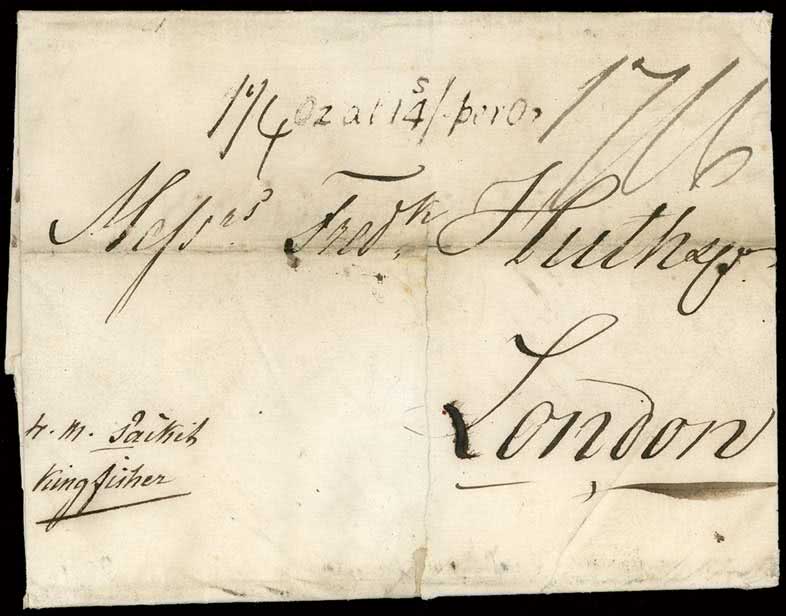 1 1/4 Oz at 14s/. per Oz 17/6
Messrs Fredk Huth & Co
London
H. M. Packet
Kingfisher